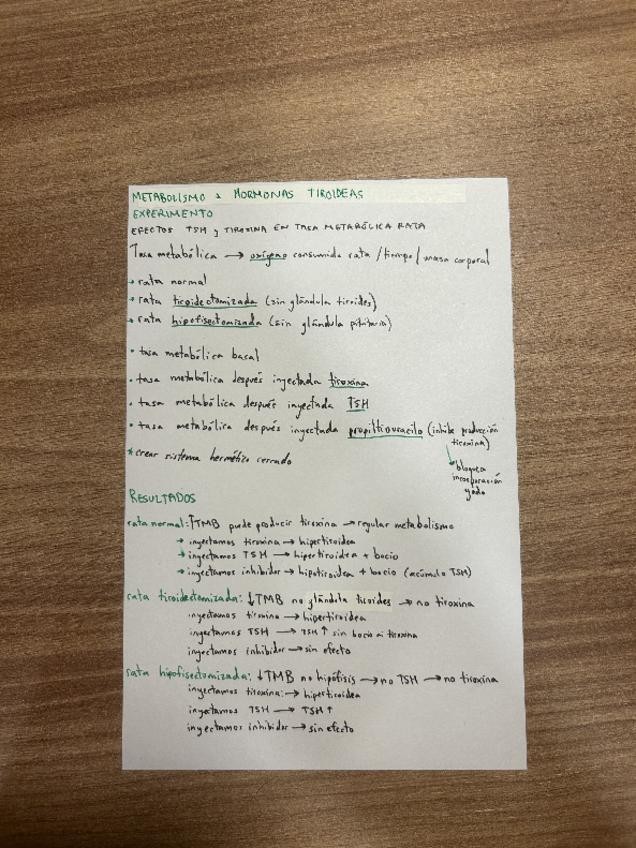 METABOLISMO y HORMONAS TIROIDEAS
EXPERIMENTO
EFECTOS TSH y TIROXINA EN TASA METABÓLICA RATA
Tasa metabólica → oxígeno consumido rata /tiempo/ masa corporal
→ rata normal
→ rata tiroidectomizada (sin glándula tiroides)
→ rata hipofisectomizada (sin glándula pituitaria)
• tasa metabólica basal
• tasa metabólica después inyectada tiroxina
• tasa metabólica después inyectada TSH
• tasa metabólica después inyectada propiltiouracilo (inhibe producción
tiroxina)
→ bloquea
incorporación
yodo
*crear sistema hermético cerrado
RESULTADOS
rata normal: ↑TMB puede producir tiroxina → regular metabolismo
→ inyectamos tiroxina → hipertiroidea
→ inyectamos TSH → hipertiroidea + bocio
→ inyectamos inhibidor → hipotiroidea + bocio (acúmulo TSH)
rata tiroidectomizada: ↓TMB no glándula tiroides → no tiroxina
inyectamos tiroxina → hipertiroidea
inyectamos TSH → TSH↑ sin bocio ni tiroxina
inyectamos inhibidor → sin efecto
rata hipofisectomizada: ↓TMB no hipófisis → no TSH → no tiroxina
inyectamos tiroxina: → hipertiroidea
inyectamos TSH → TSH↑
inyectamos inhibidor → sin efecto